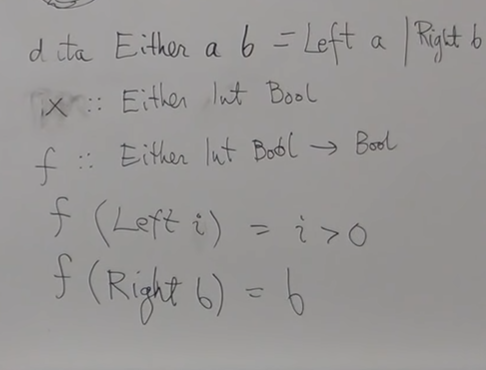 data Either a b = Left a | Right b
x :: Either Int Bool
f :: Either Int Bool → Bool
f (Left i) = i > 0
f (Right b) = b